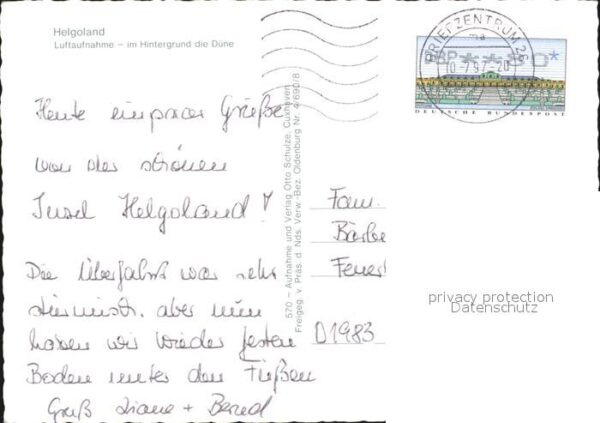 Helgoland
Luftaufnahme – im Hintergrund die Düne
BRIEFZENTRUM 26
DBP ***80*
DEUTSCHE BUNDESPOST
Heute ein paar Grüße
von der schönen
Insel Helgoland!
Die Überfahrt war sehr
stürmisch, aber nun
haben wir wieder festen
Boden unter den Füßen
Gruß Liane + Bernd
570 – Aufnahme und Verlag Otto Schulze, Cuxhaven
Freigeg. v. Präs. d. Nds. Verw.-Bez. Oldenburg Nr. 4/690/8
Fam.
Bärbe
Feuer
D1983
privacy protection
Datenschutz